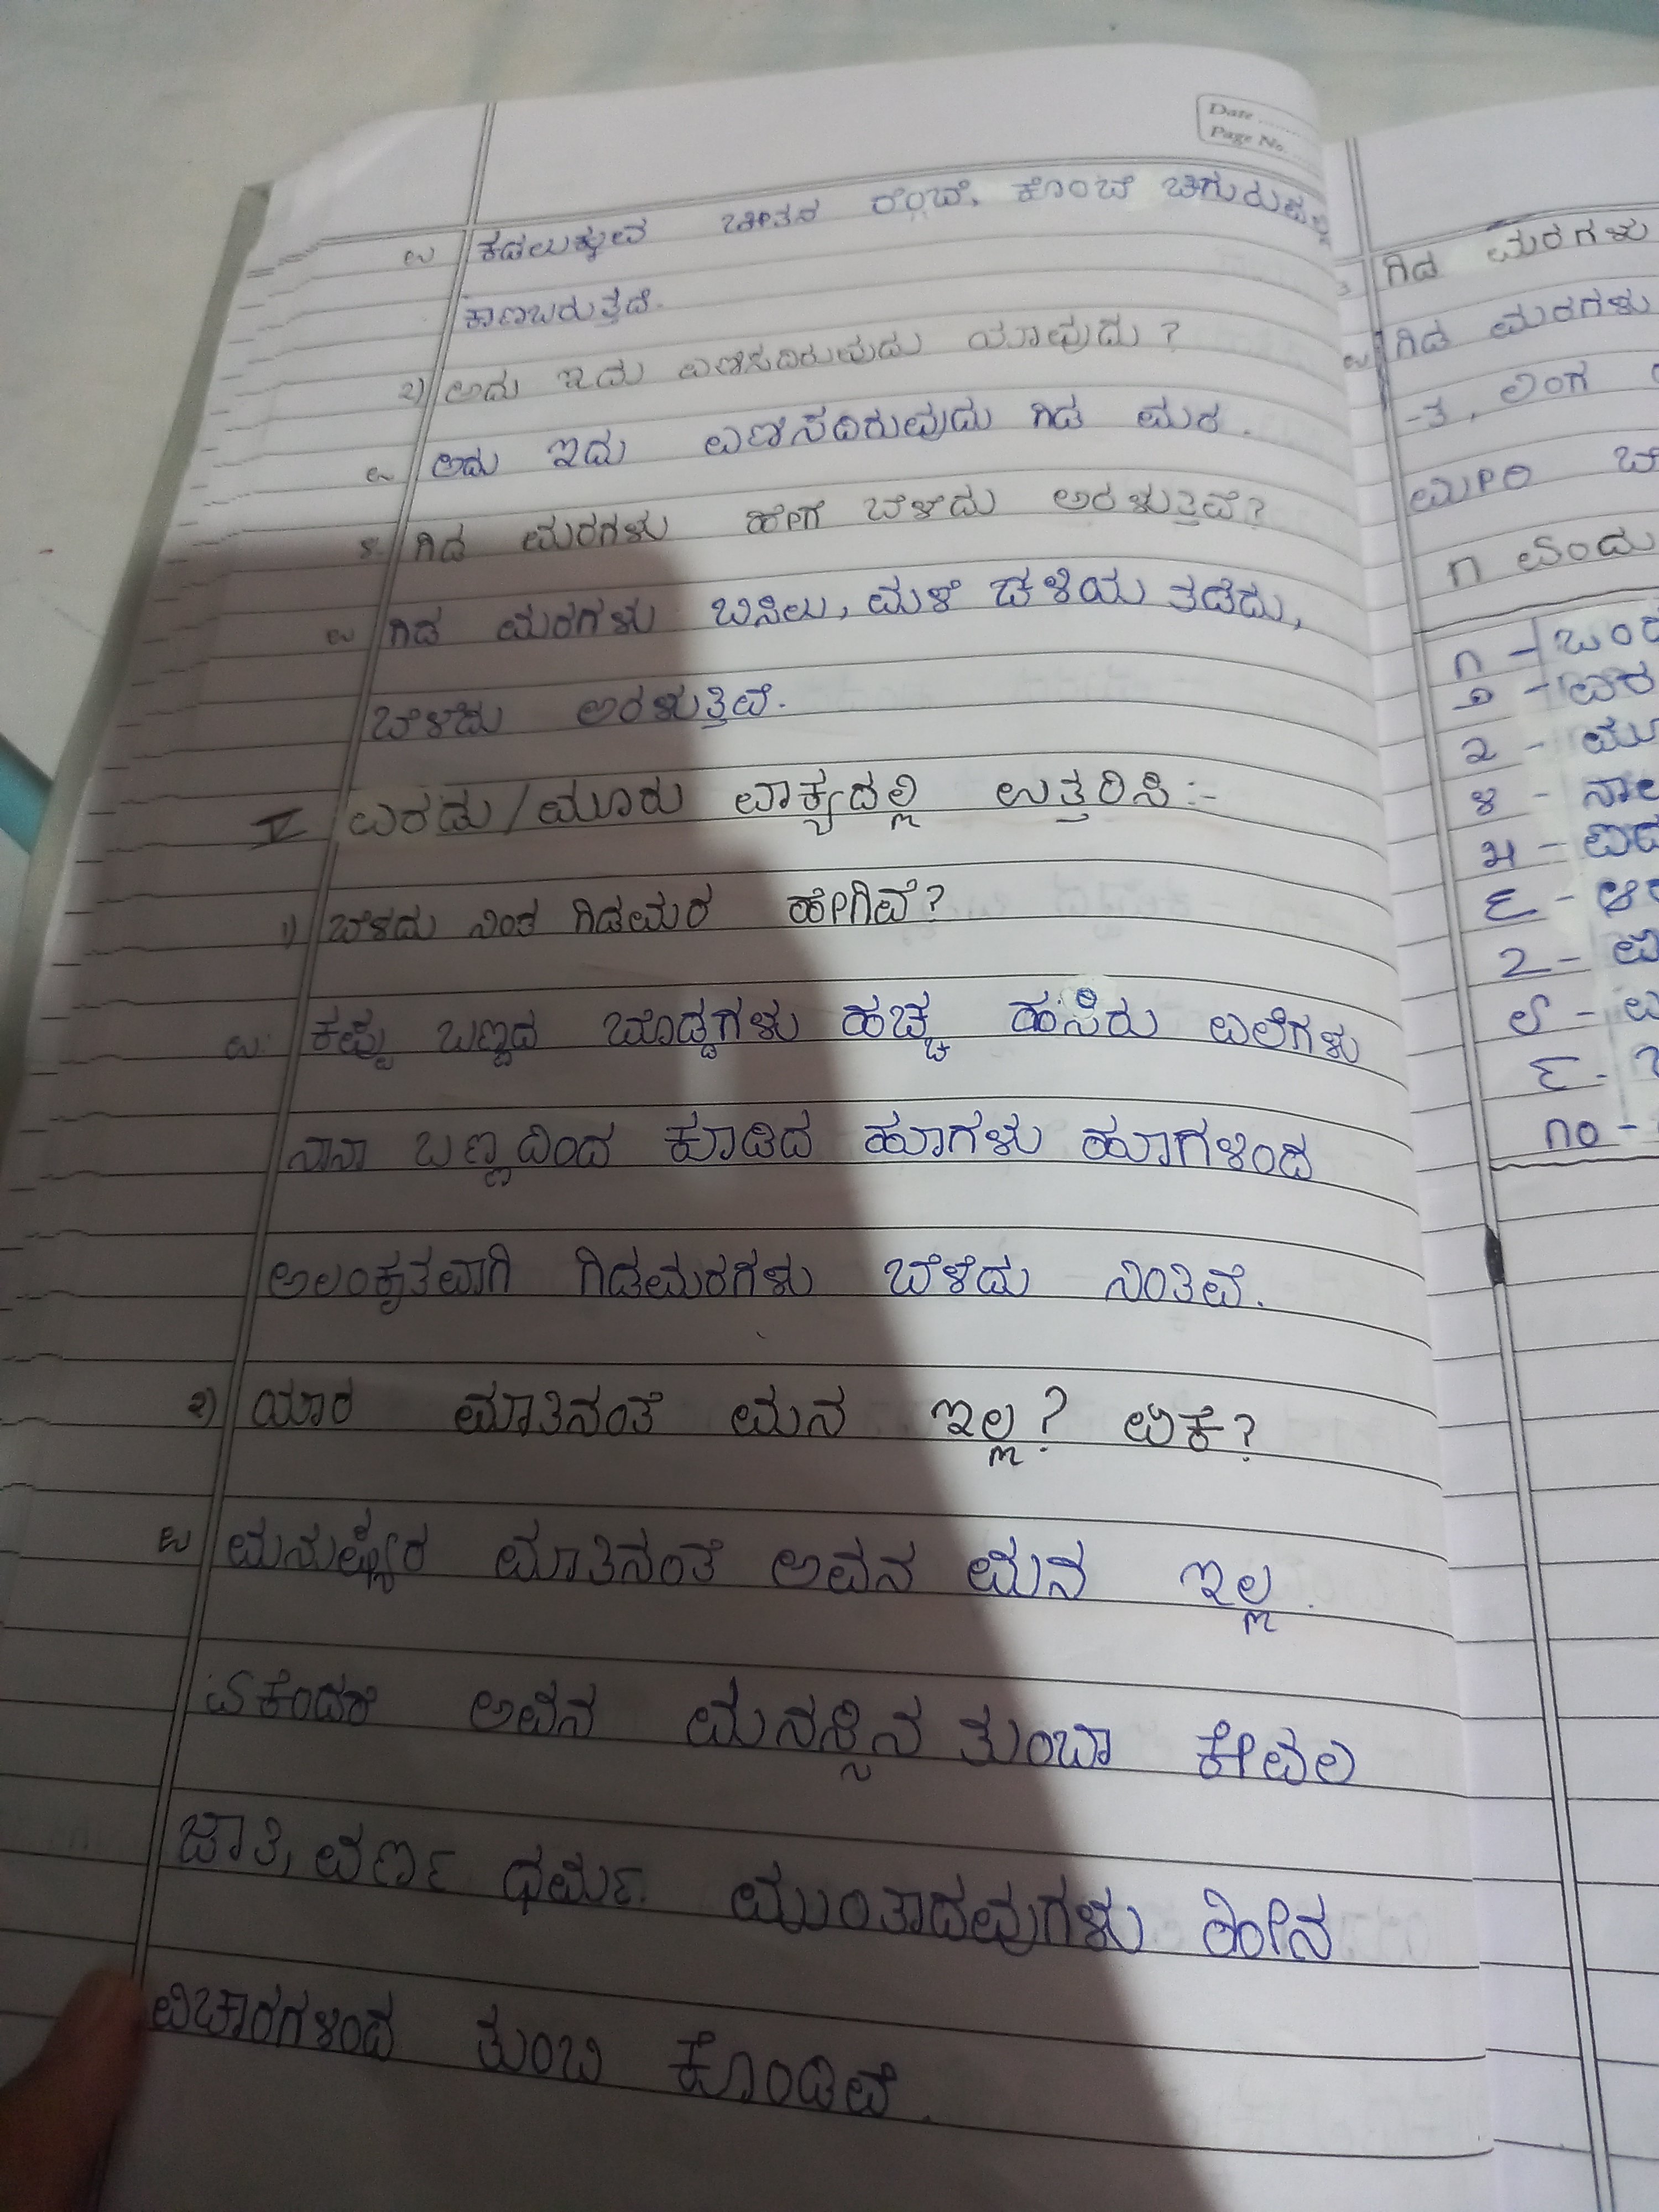 Date
Page No.
ಉ ಕಡಲುಕ್ಕುವ ಚೇತನ ರೆಂಬೆ, ಕೊಂಬೆ ಚಿಗುರುವಲ್ಲಿ
ಕಾಣಬರುತ್ತದೆ.
೨) ಅದು ಇದು ಎಣಿಸದಿರುವುದು ಯಾವುದು?
ಉ ಅದು ಇದು ಎಣಿಸದಿರುವುದು ಗಿಡ ಮರ.
೪. ಗಿಡ ಮರಗಳು ಹೇಗೆ ಬೆಳೆದು ಅರಳುತ್ತಿವೆ?
ಉ ಗಿಡ ಮರಗಳು ಬಿಸಿಲು, ಮಳೆ ಚಳಿಯ ತಡೆದು,
ಬೆಳೆದು ಅರಳುತ್ತಿವೆ.
V ಎರಡು/ಮೂರು ವಾಕ್ಯದಲ್ಲಿ ಉತ್ತರಿಸಿ:-
೧) ಬೆಳೆದು ನಿಂತ ಗಿಡಮರ ಹೇಗಿವೆ?
ಉ: ಕಪ್ಪು ಬಣ್ಣದ ಬೊಡ್ಡೆಗಳು ಹಚ್ಚ ಹಸಿರು ಎಲೆಗಳು
ನಾನಾ ಬಣ್ಣದಿಂದ ಕೂಡಿದ ಹೂಗಳು ಹೂಗಳಿಂದ
ಅಲಂಕೃತವಾಗಿ ಗಿಡಮರಗಳು ಬೆಳೆದು ನಿಂತಿವೆ.
೨) ಯಾರ ಮಾತಿನಂತೆ ಮನ ಇಲ್ಲ? ಏಕೆ?
ಉ ಮನುಷ್ಯರ ಮಾತಿನಂತೆ ಅವನ ಮನ ಇಲ್ಲ.
ಏಕೆಂದರೆ ಅವನ ಮನಸ್ಸಿನ ತುಂಬಾ ಕೇವಲ
ಜಾತಿ, ವರ್ಣ ಧರ್ಮ. ಮುಂತಾದವುಗಳು ಹೀನ
ವಿಚಾರಗಳಿಂದ ತುಂಬಿ ಕೊಂಡಿವೆ.
ಗಿಡ ಮರಗಳು
ಉ ಗಿಡ ಮರಗಳು
-ತ, ಲಿಂಗ
ಮೀರಿ
೧ ಎಂದು
೧ -
೨ -
೩ -
೪ -
೫ -
೬ -
೭ -
೮ -
೯ -
೧೦ -